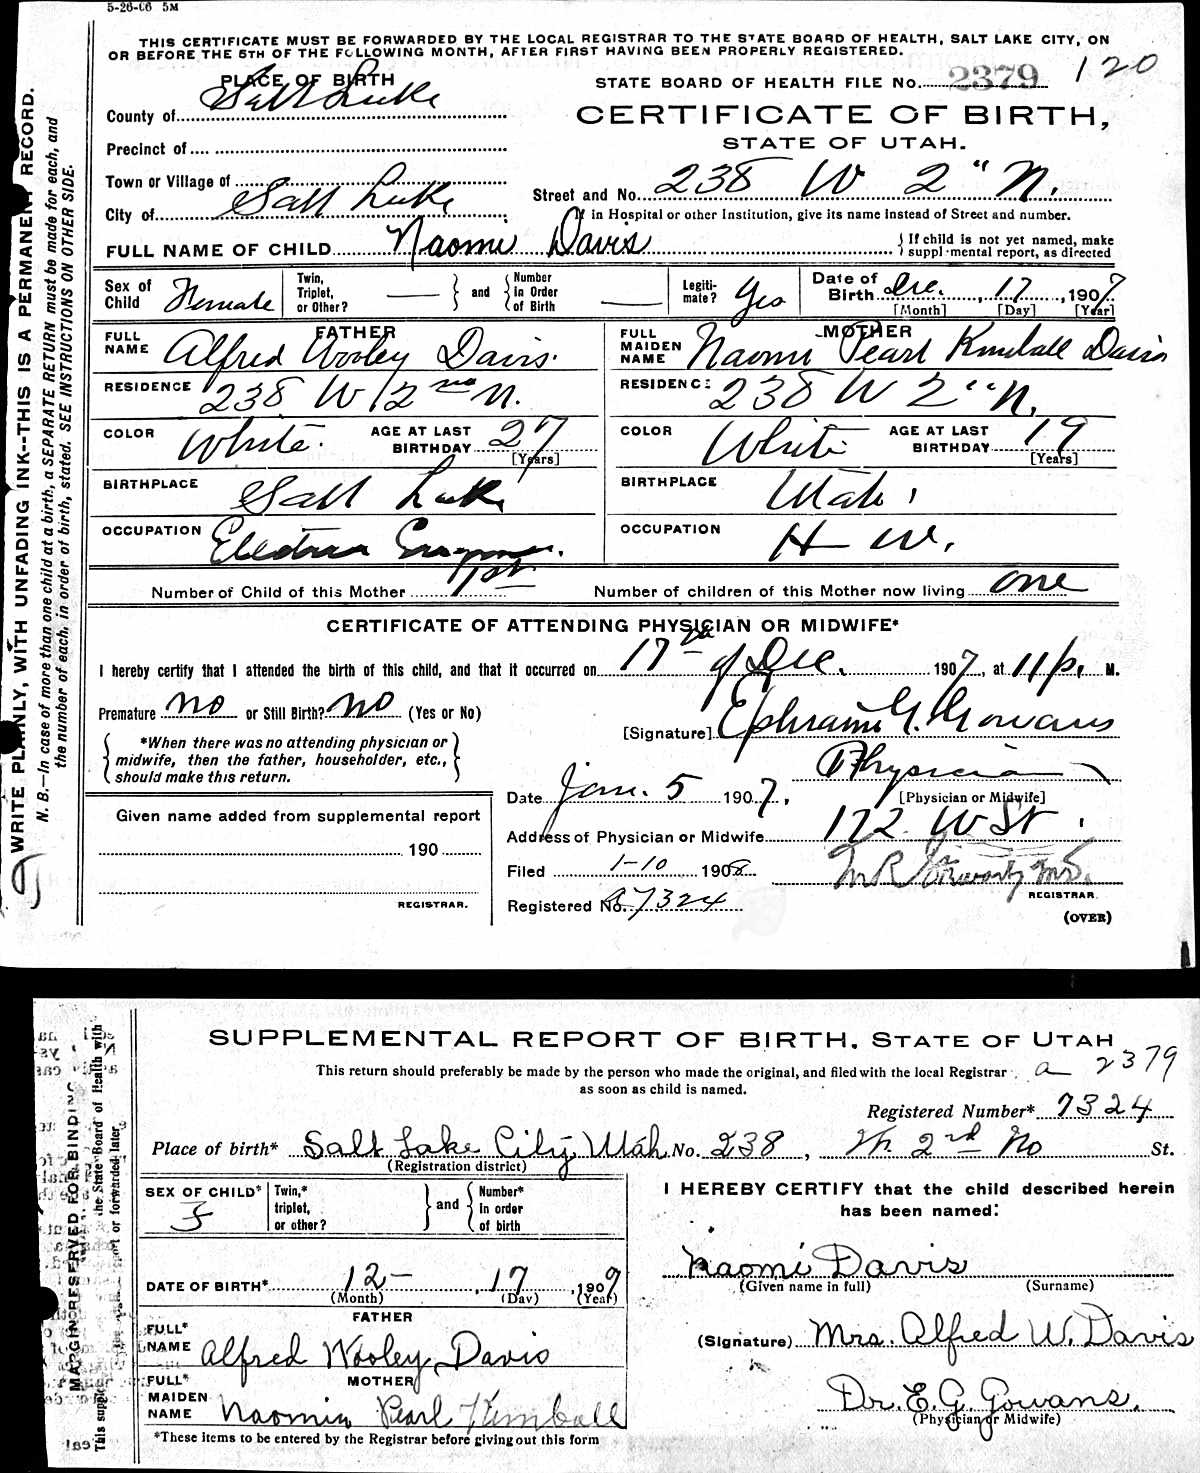 5-26-06 5M
THIS CERTIFICATE MUST BE FORWARDED BY THE LOCAL REGISTRAR TO THE STATE BOARD OF HEALTH, SALT LAKE CITY, ON
OR BEFORE THE 5TH OF THE FOLLOWING MONTH, AFTER FIRST HAVING BEEN PROPERLY REGISTERED.
PLACE OF BIRTH
STATE BOARD OF HEALTH FILE No. 2379 120
County of Salt Lake
CERTIFICATE OF BIRTH,
STATE OF UTAH.
Precinct of
Town or Village of
Street and No. 238 W 2" N.
City of Salt Lake
If in Hospital or other Institution, give its name instead of Street and number.
FULL NAME OF CHILD Naomi Davis
If child is not yet named, make
supplemental report, as directed
Sex of Child Female
Twin, Triplet, or Other? — and Number in Order of Birth —
Legiti-mate? Yes
Date of Birth Dec. 17, 1907
[Month] [Day] [Year]
FATHER
FULL NAME Alfred Wooley Davis.
MOTHER
FULL MAIDEN NAME Naomi Pearl Kimball Davis
RESIDENCE 238 W 2nd N.
RESIDENCE 238 W 2" N.
COLOR White. AGE AT LAST BIRTHDAY 27 [Years]
COLOR White AGE AT LAST BIRTHDAY 19 [Years]
BIRTHPLACE Salt Lake
BIRTHPLACE Utah
OCCUPATION
OCCUPATION H W.
Number of Child of this Mother 1st
Number of children of this Mother now living one
CERTIFICATE OF ATTENDING PHYSICIAN OR MIDWIFE*
I hereby certify that I attended the birth of this child, and that it occurred on 17 of Dec. 1907, at 11 p. M.
Premature no or Still Birth? no (Yes or No)
[Signature] Ephraim G. Gowans
*When there was no attending physician or
midwife, then the father, householder, etc.,
should make this return.
Physician
[Physician or Midwife]
Date Jan. 5 1907,
Given name added from supplemental report
Address of Physician or Midwife 172 W St
190
Filed 1-10 1908
REGISTRAR.
REGISTRAR.
Registered No. a7324
(OVER)
WRITE PLAINLY, WITH UNFADING INK--THIS IS A PERMANENT RECORD.
N. B.—In case of more than one child at a birth, a SEPARATE RETURN must be made for each, and
the number of each, in order of birth, stated. SEE INSTRUCTIONS ON OTHER SIDE.
SUPPLEMENTAL REPORT OF BIRTH. STATE OF UTAH
This return should preferably be made by the person who made the original, and filed with the local Registrar
as soon as child is named.
a 2379
Registered Number* 7324
Place of birth* Salt Lake City, Utah No. 238, W. 2nd No St.
(Registration district)
SEX OF CHILD* F
Twin,* triplet, or other? and Number* In order of birth
I HEREBY CERTIFY that the child described herein
has been named:
Naomi Davis
(Given name in full) (Surname)
DATE OF BIRTH* 12-, 17, 1909
(Month) (Day) (Year)
FATHER
FULL* NAME Alfred Wooley Davis
(Signature) Mrs. Alfred W. Davis
MOTHER
FULL* MAIDEN NAME Naomia Pearl Kimball
Dr. E. G. Gowans.
(Physician or Midwife)
*These items to be entered by the Registrar before giving out this form
MARGIN RESERVED FOR BINDING